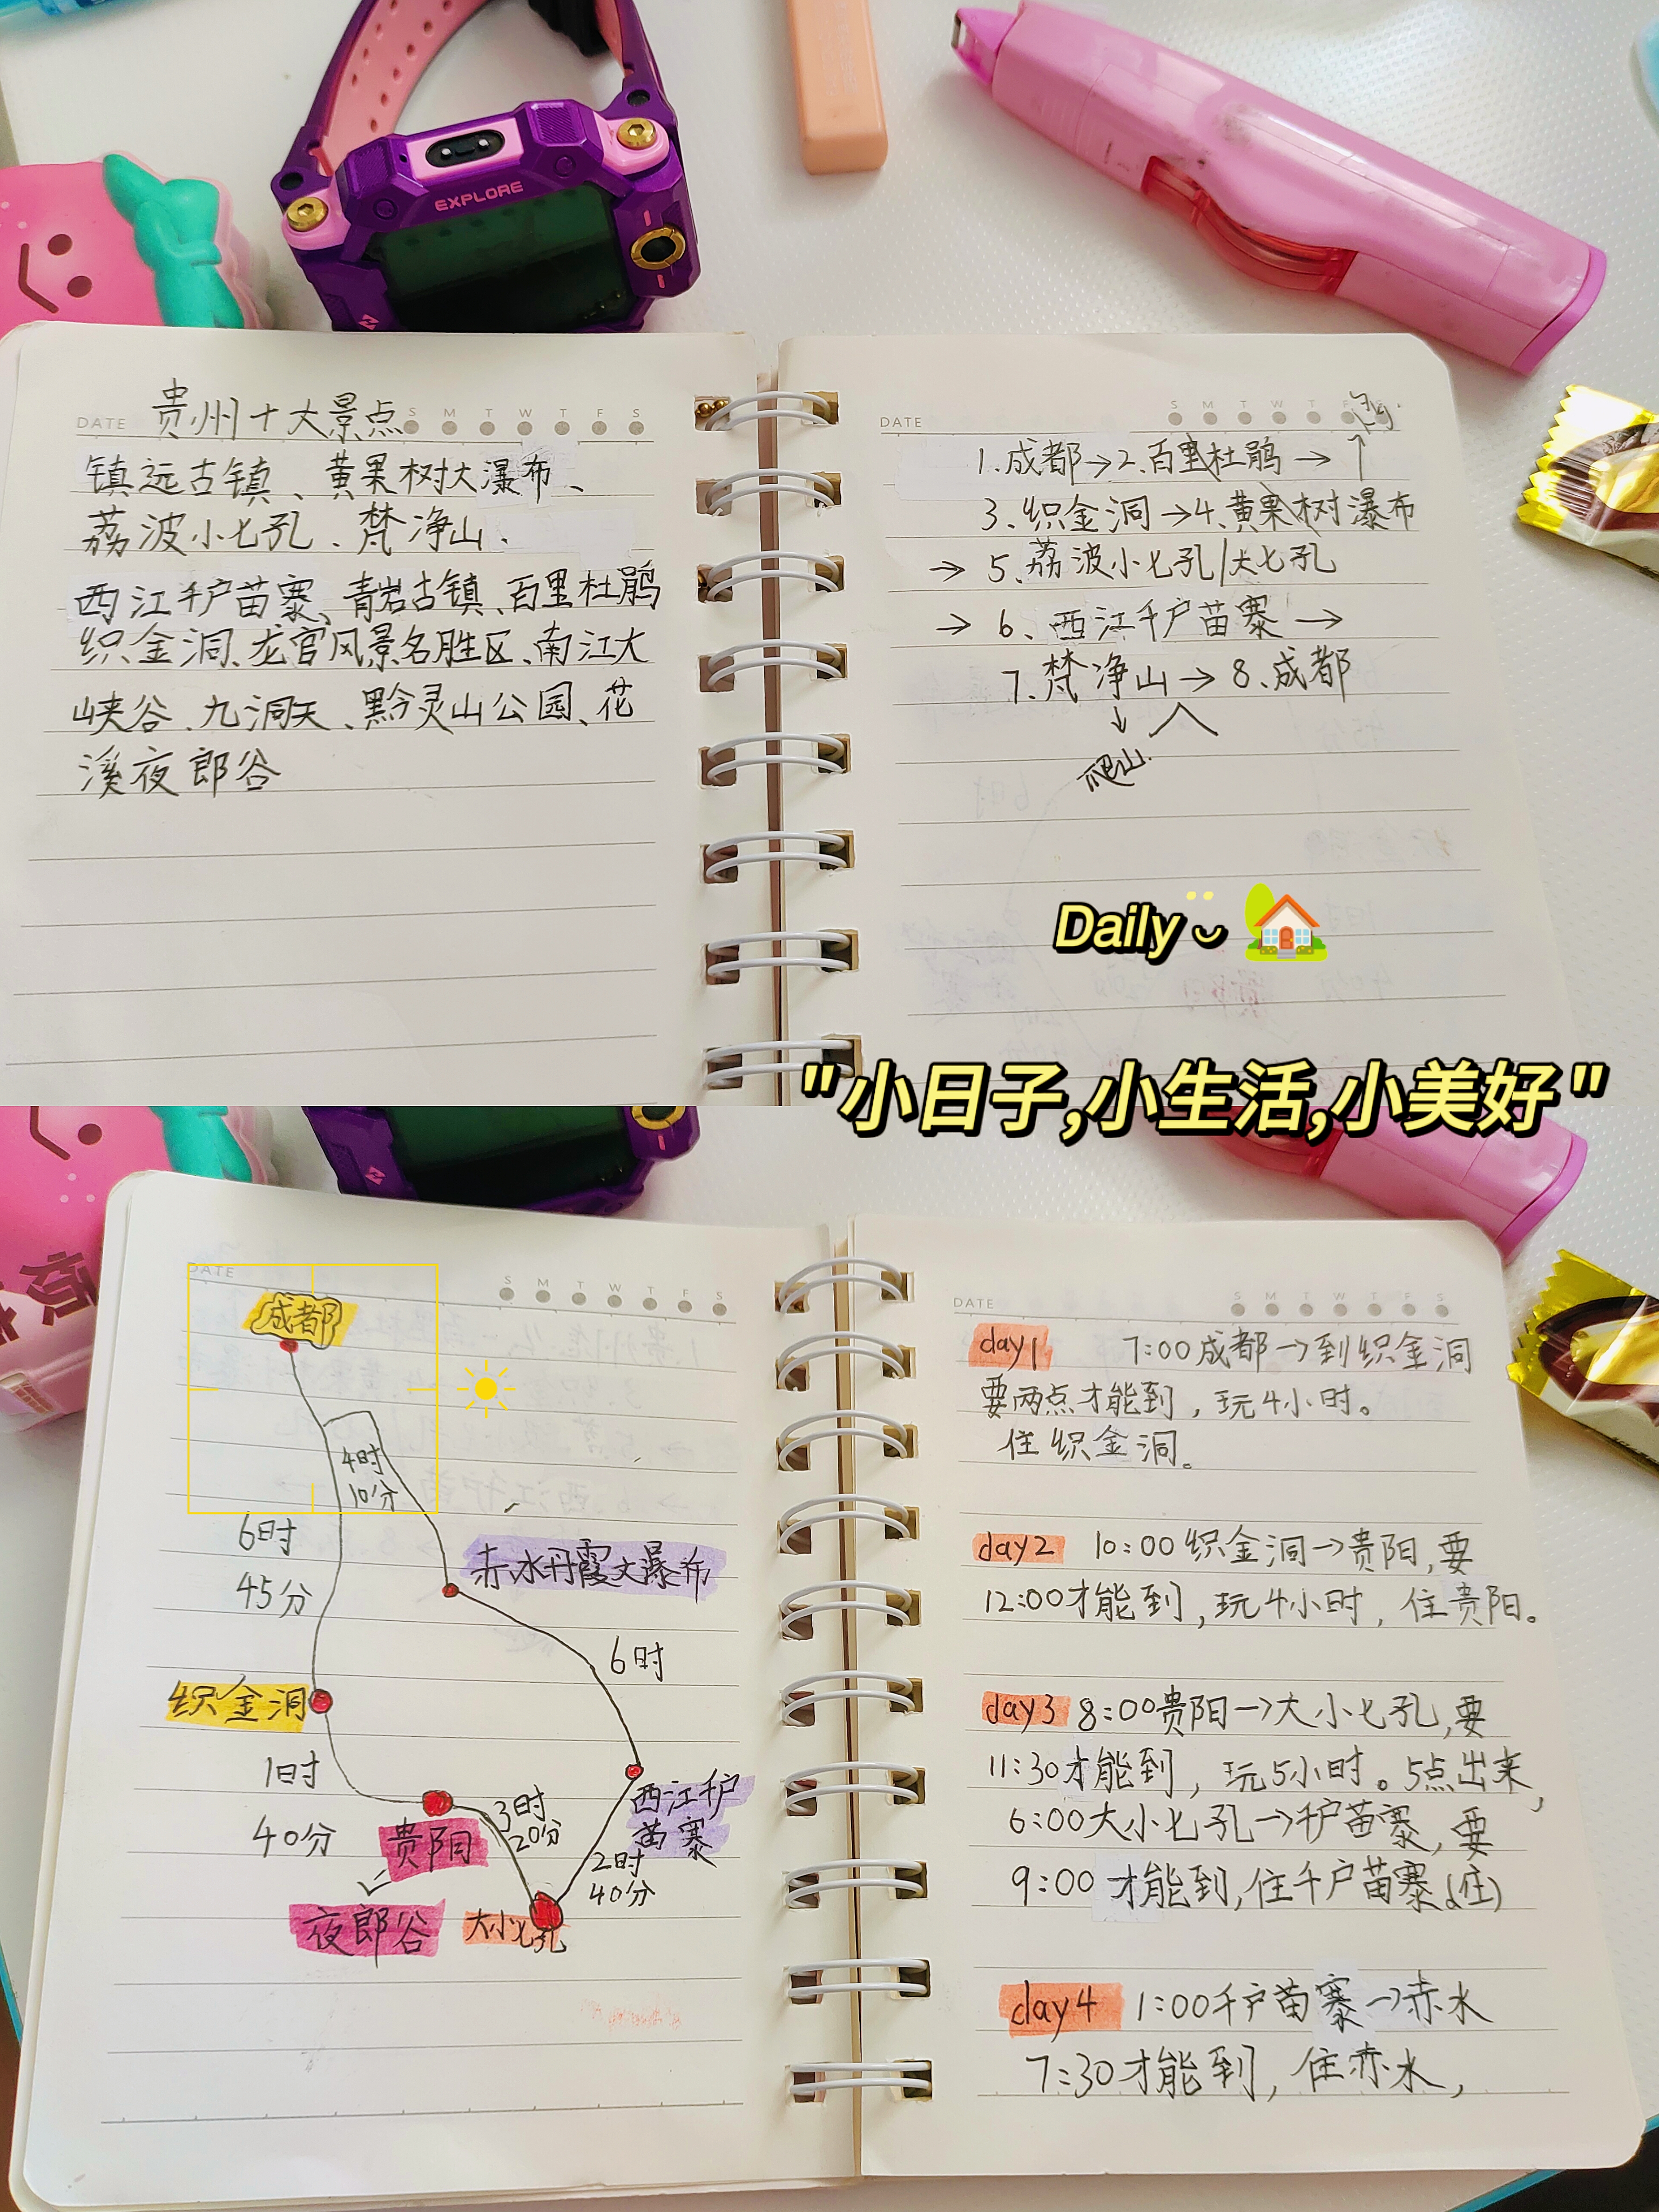 EXPLORE
DATE 贵州十大景点 S M T W T F S
镇远古镇、黄果树大瀑布、
荔波小七孔、梵净山、
西江千户苗寨、青岩古镇、百里杜鹃
织金洞、龙宫风景名胜区、南江大
峡谷、九洞天、黔灵山公园、花
溪夜郎谷
DATE S M T W T F S
1.成都→2.百里杜鹃→
3.织金洞→4.黄果树瀑布
→5.荔波小七孔/大七孔
→6、西江千户苗寨→
7.梵净山→8.成都
↓
爬山.
Daily
"小日子,小生活,小美好"
烦
DATE S M T W T F S
成都
4时
10分
6时
45分
赤水丹霞大瀑布
6时
织金洞
1时
40分
贵阳
3时
20分
西江千户
苗寨
2时
40分
夜郎谷
大小七孔
DATE S M T W T F S
day1 7:00成都→到织金洞
要两点才能到，玩4小时。
住织金洞。
day2 10:00织金洞→贵阳,要
12:00才能到,玩4小时,住贵阳。
day3 8:00贵阳→大小七孔,要
11:30才能到，玩5小时。5点出来,
6:00大小七孔→千户苗寨,要
9:00才能到,住千户苗寨(住)
day4 1:00千户苗寨→赤水
7:30才能到，住赤水，